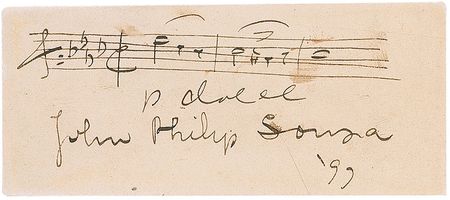 p dolce
John Philip Sousa
'97